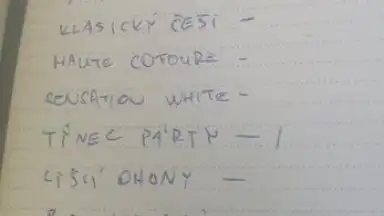 KLASICKÝ ČEŠI -
HAUTE COTOURE -
SENSATION WHITE -
TÝNEC PÁRTY - 1
LIŠČÍ OHONY -